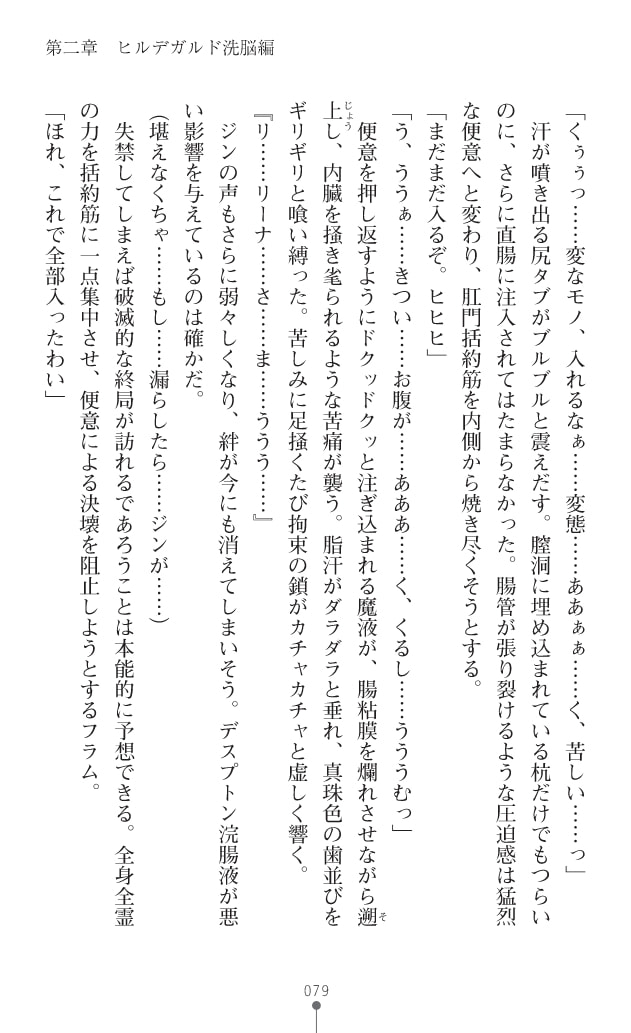 第二章　ヒルデガルド洗脳編
「くぅぅっ……変なモノ、入れるなぁ……変態……ああぁぁ……く、苦しい……っ」
　汗が噴き出る尻タブがブルブルと震えだす。膣洞に埋め込まれている杭だけでもつらい
のに、さらに直腸に注入されてはたまらなかった。腸管が張り裂けるような圧迫感は猛烈
な便意へと変わり、肛門括約筋を内側から焼き尽くそうとする。
「まだまだ入るぞ。ヒヒヒ」
「う、ううぁ……きつい……お腹が……あああ……く、くるし……うううむっ」
　便意を押し返すようにドクッドクッと注ぎ込まれる魔液が、腸粘膜を爛れさせながら遡そ
上じょうし、内臓を掻き毟られるような苦痛が襲う。脂汗がダラダラと垂れ、真珠色の歯並びを
ギリギリと喰い縛った。苦しみに足掻くたび拘束の鎖がカチャカチャと虚しく響く。
『リ……リーナ……さ……ま……ううう……』
　ジンの声もさらに弱々しくなり、絆が今にも消えてしまいそう。デスプトン浣腸液が悪
い影響を与えているのは確かだ。
（堪えなくちゃ……もし……漏らしたら……ジンが……）
　失禁してしまえば破滅的な終局が訪れるであろうことは本能的に予想できる。全身全霊
の力を括約筋に一点集中させ、便意による決壊を阻止しようとするフラム。
「ほれ、これで全部入ったわい」
079